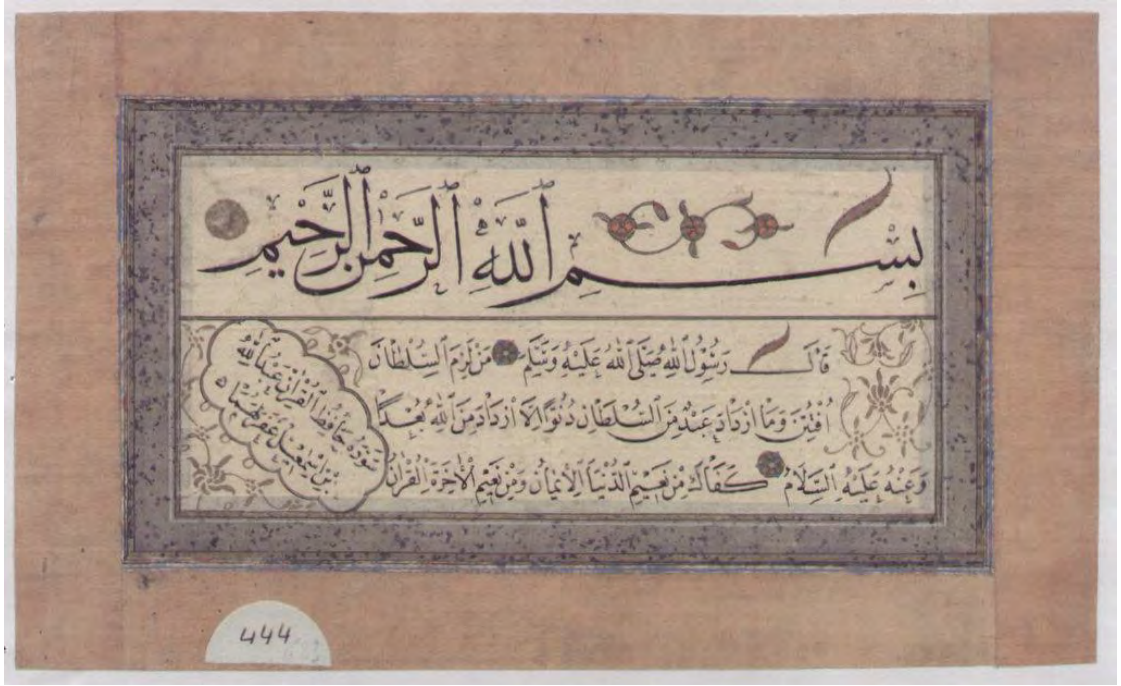 بِسْمِ ٱللَّهِ ٱلرَّحْمٰنِ ٱلرَّحِيمِ
قَالَ رَسُولُ ٱللهِ صَلَّى ٱللهُ عَلَيْهِ وَسَلَّمَ مَنْ لَزِمَ ٱلسُّلْطَانَ
ٱفْتُتِنَ وَمَا ٱزْدَادَ عَبْدٌ مِنَ ٱلسُّلْطَانِ دُنُوًّا إِلَّا ٱزْدَادَ مِنَ ٱللهِ بُعْدًا
وَعَنْهُ عَلَيْهِ ٱلسَّلَامُ كَفَاكَ مِنْ نَعِيْمِ ٱلدُّنْيَا ٱلْإِيْمَانُ وَمِنْ نَعِيْمِ ٱلْآخِرَةِ ٱلْقُرْاٰنُ
سَوَّدَهُ حَافِظُ ٱلْقُرْاٰنِ عَبْدُ ٱللهِ
بْنِ إِسْمٰعِيلَ غَفَرَ لَهُمَا
444